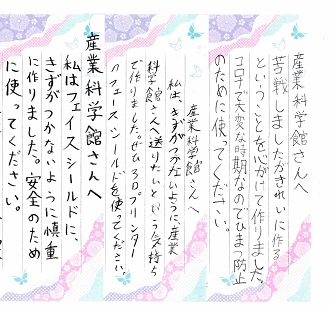 産業科学館さんへ
苦戦しましたがきれいに作る
ということを心がけて作りました。
コロナで大変な時期なのでひまつ防止
のために使ってください。
産業科学館さんへ
私は、きずがつかないように、産業
科学館さんへ送りたいという気持ち
で作りました。ぜひ3Dプリンター
のフェースシールドを使ってください。
産業科学館さんへ
私はフェイスシールドに、
きずがつかないように慎重
に作りました。安全のため
に使ってください。